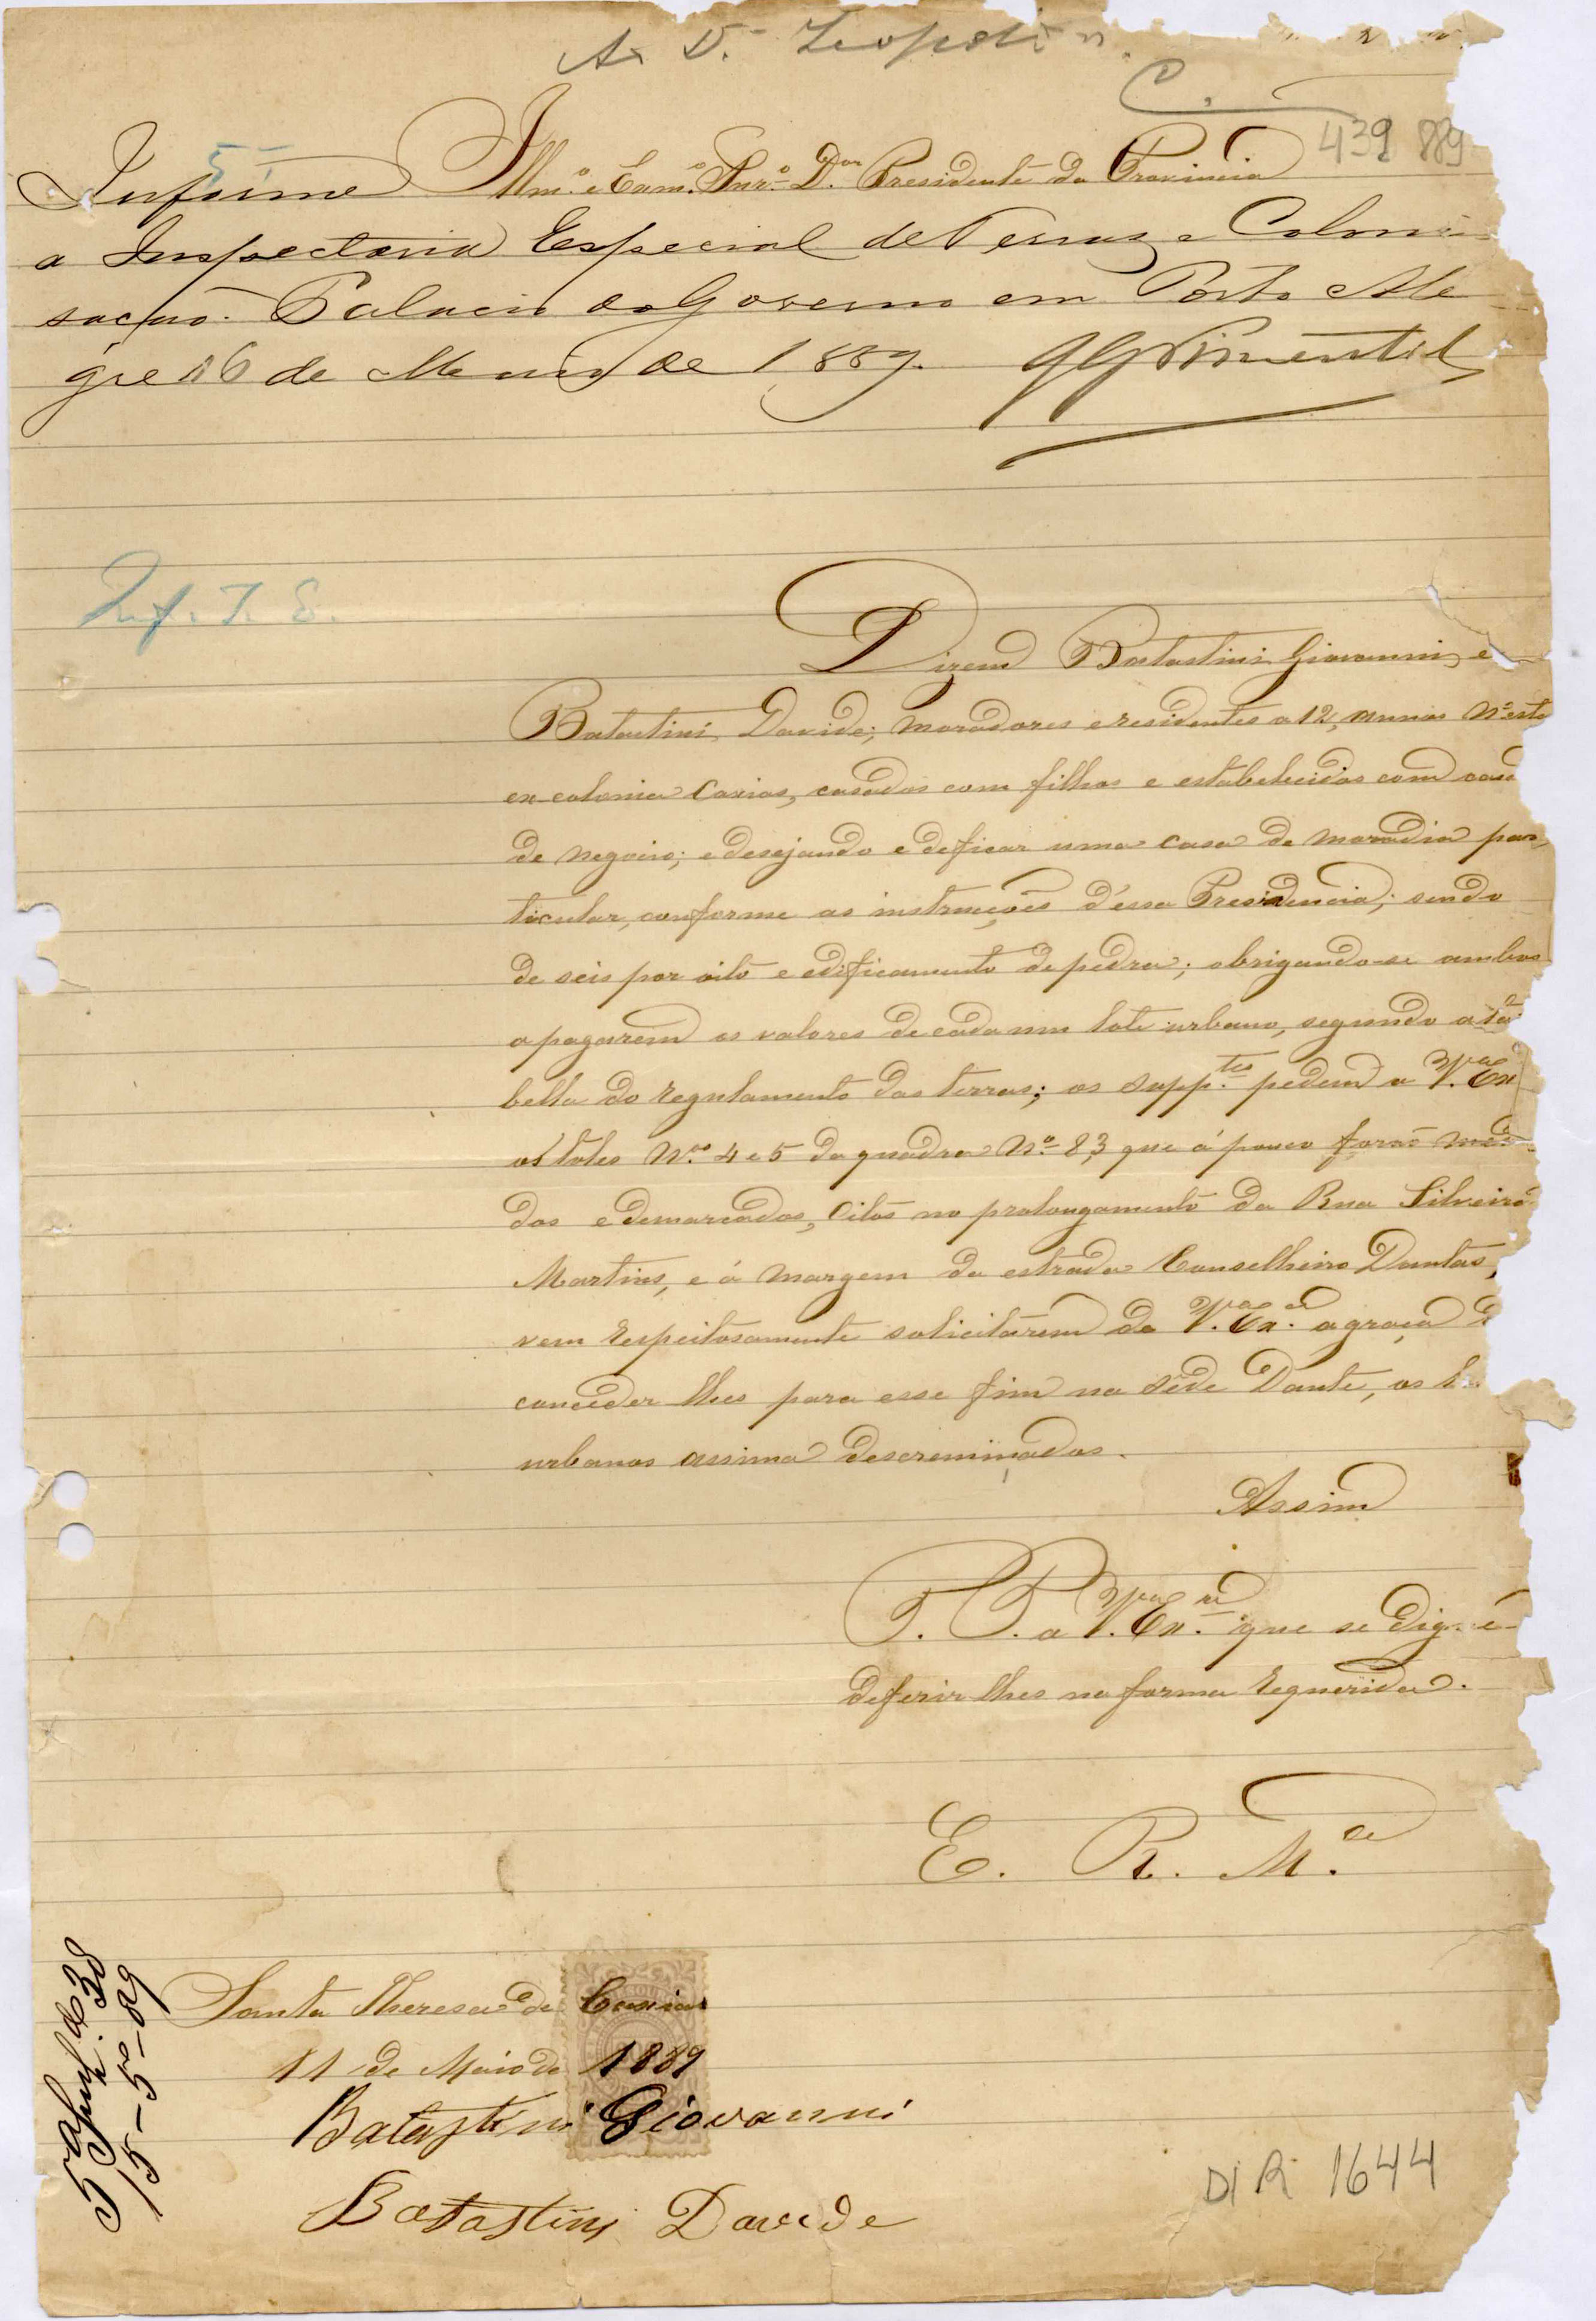 A D. Leopoldin
C.
439 889
5
Illm.º e Exm.º Snr.º D.or Presidente da Provincia
Informe
a Inspectoria Especial de Terras e Coloni
sação. Palacio do Governo em Porto Ale
gre 16 de Maio de 1889. Pimentel
Inf. T. E.
Dizem Batastini Giovanni, e
Batastini Davide; moradores e residentes a 12 annos n'esta
ex-colonia Caxias, casados com filhos e estabelecidos com casa
de negocio; e desejando edeficar uma casa de moradia par
ticular, conforme as instrucções d'essa Presidencia; sendo
de seis por oito e edificamento de pedra; obrigando-se ambos
a pagarem os valores de cada um lote urbano, segundo a ta
bella do regulamento das terras; os supp.tes pedem a V.a Ex
os lotes N.os 4 e 5 da quadra N.º 83 que á pouco forão medi
dos e demarcados, citos no prolongamento da Rua Silveira
Martins, e á margem da estrada Conselheiro Dantas,
vem respeitosamente solicitarem de V.a Ex.cia a graça d
conceder lhes para esse fim na séde Dante, os l
urbanos assima descreminados.
Assim
P. P. a V.a Ex.cia que se digne
deferir lhes na forma requerida.
E. R. M.ce
Santa Theresa de Caxias
11 de Maio de 1889
Batastini Giovanni
Batastini Davide
15-5-89
DIR 1644